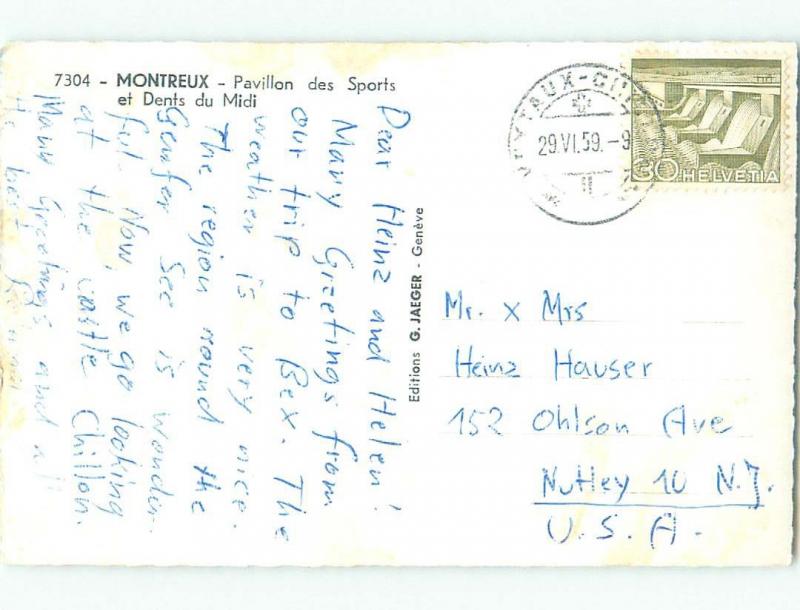 7304 - MONTREUX - Pavillon des Sports
et Dents du Midi
Dear Heinz and Helen!
Many Greetings from
our trip to Bex. The
weather is very nice.
The region round the
Genfer See is wonder-
ful. Now, we go looking
at the castle Chillon.
Many Greetings and all
the best
Editions G. JAEGER - Genève
29.VI.59.-9
30 HELVETIA
Mr. x Mrs
Heinz Hauser
152 Ohlson Ave
Nutley 10 N.J.
U.S.A.